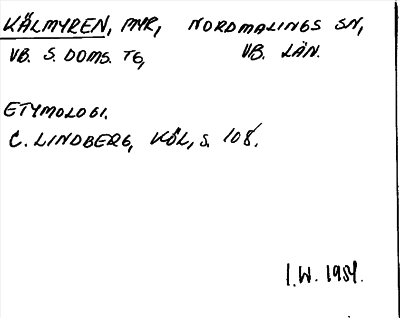 KÄLMYREN, MYR, NORDMALINGS SN,
VB. S. DOMS. TG, VB. LÄN.
ETYMOLOGI.
C. LINDBERG, KÖL, S. 108.
I.W. 1984.